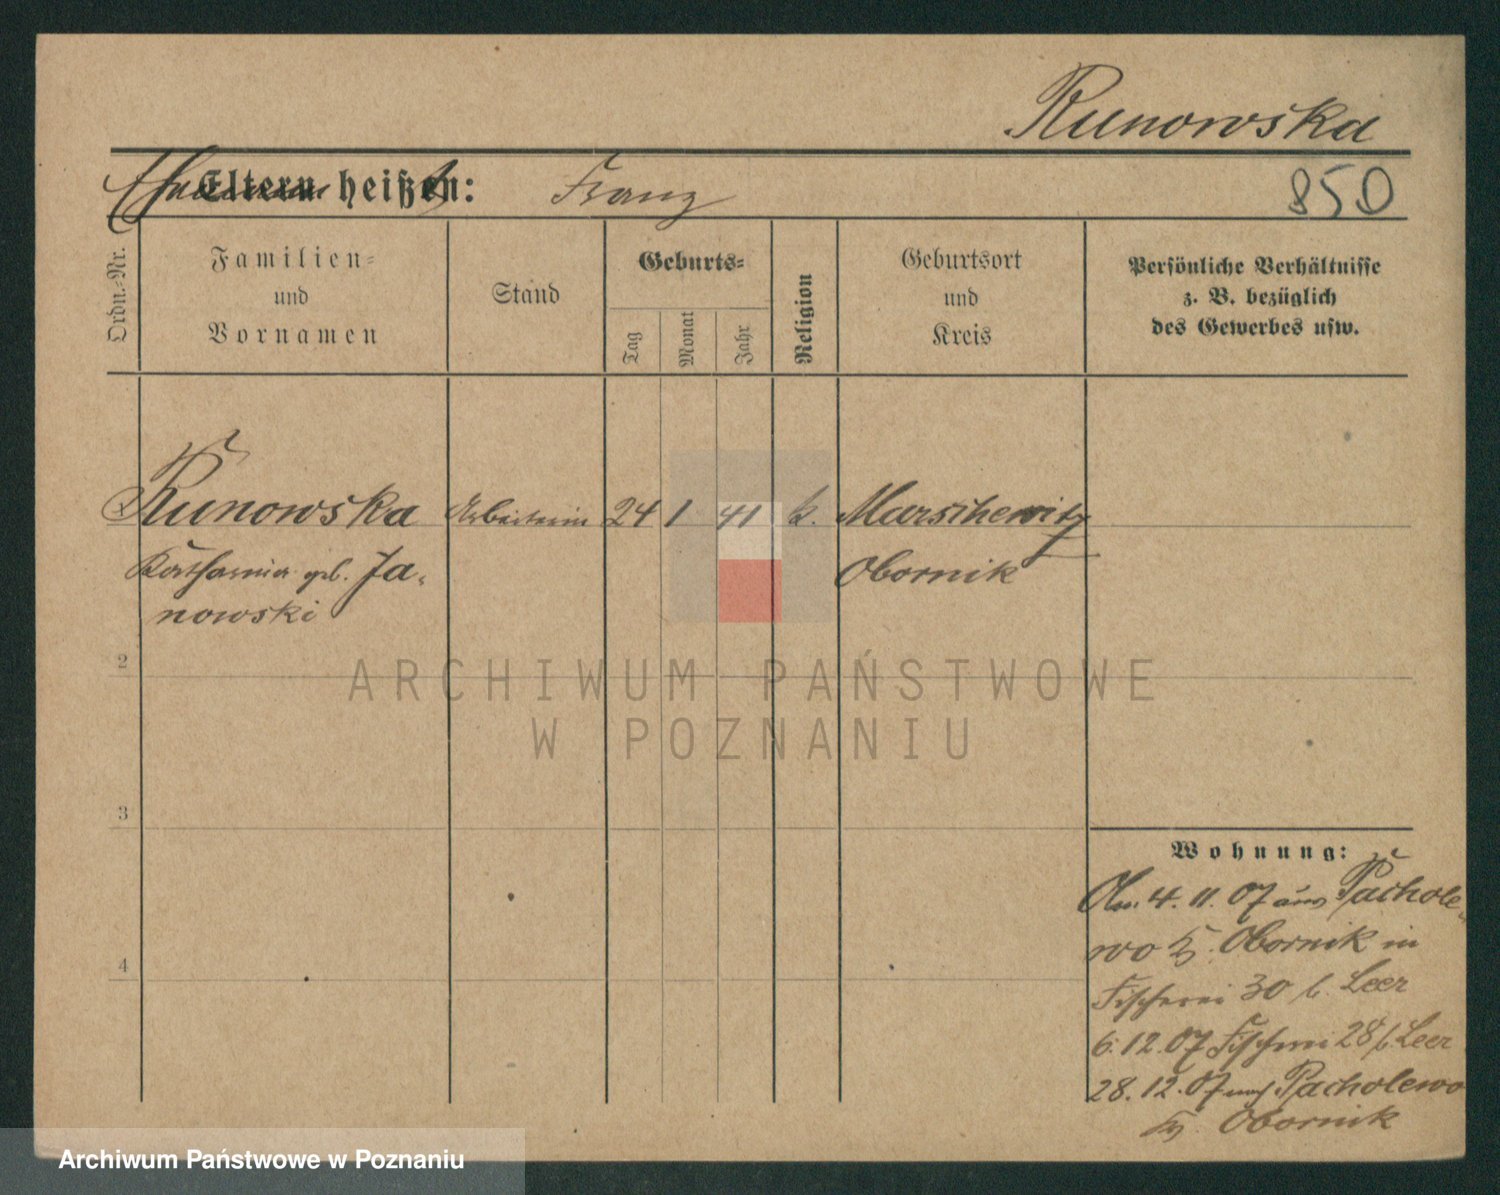 Runowska
Eltern heißen: Franz 850
Ordn.-Nr.
Familien-
und
Vornamen
Stand
Geburts-
Tag
Monat
Jahr
Religion
Geburtsort
und
Kreis
Persönliche Verhältnisse
z. B. bezüglich
des Gewerbes usw.
Runowska Arbeiterin 24 1 41 k. Marschewitz
Katharina geb. Ja-
nowski
Obornik
2
3
4
ARCHIWUM PAŃSTWOWE
W POZNANIU
Wohnung:
4. 11. 07 aus Pachole-
wo Kr. Obornik in
Fischerei 30 b. Leer
6. 12. 07 Fischerei 28 b. Leer
28. 12. 07 nach Pacholewo
Kr. Obornik
Archiwum Państwowe w Poznaniu